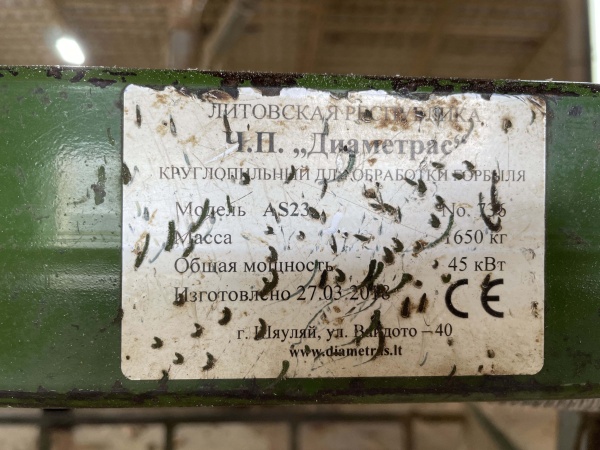 ЛИТОВСКАЯ РЕСПУБЛИКА
Ч.П. „Диаметрас“
КРУГЛОПИЛЬНЫЙ ДЛЯ ОБРАБОТКИ ГОРБЫЛЯ
Модель AS23 No. 736
Масса 1650 кг
Общая мощность 45 кВт
Изготовлено 27.03.2018 CE
г. Шяуляй, ул. –40
www.diametras.lt